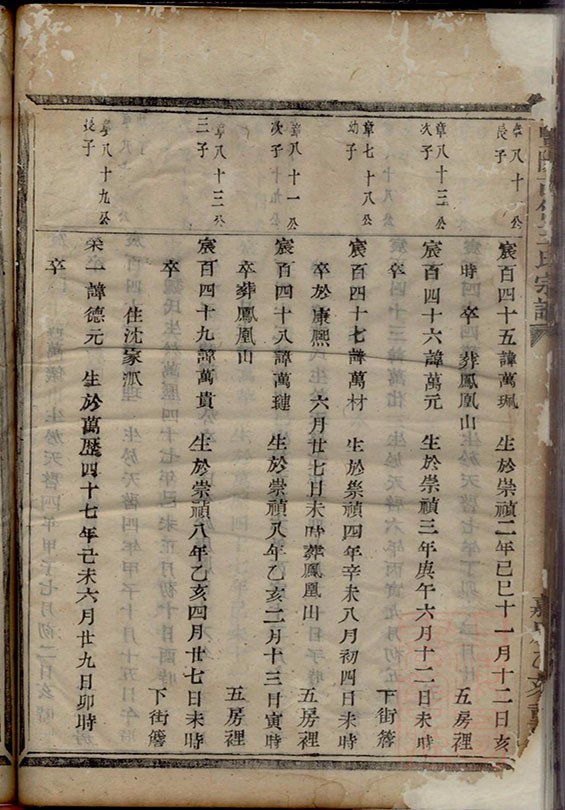 章八十公
長子
宸百四十五諱萬珮 生於崇禎二年己巳十一月十二日亥
時 卒葬鳳凰山 五房裡
章八十三公
次子
宸百四十六諱萬元 生於崇禎三年庚午六月十二日未時
卒 下街簷
章七十八公
幼子
宸百四十七諱萬材 生於崇禎四年辛未八月初四日未時
卒於康熙 六月廿七日未時葬鳳凰山 五房裡
章八十一公
次子
宸百四十八諱萬璉 生於崇禎八年乙亥二月十三日寅時
卒葬鳳凰山 五房裡
章八十三公
三子
宸百四十九諱萬貴 生於崇禎八年乙亥四月廿七日未時
卒 下街簷
章八十九公
長子
住沈家派
榮一諱德元 生於萬歷四十七年己未六月廿九日卯時
卒
氏宗譜